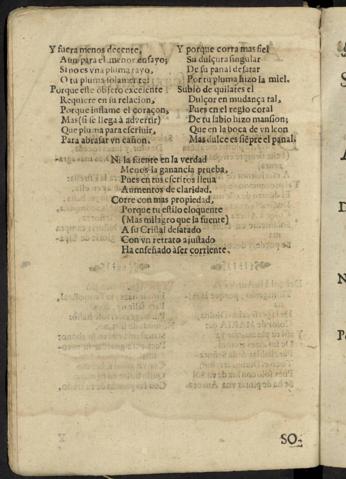 Y fuera menos decente,
Aun para el menor ensayo;
Si no es vna pluma rayo,
O tu pluma solamente.
Porque este obsequio excelente
Requiere en su relacion,
Porque inflame el coraçon,
Mas (si se llega à advertir)
Que pluma para escriuir,
Para abrasar vn cañon.
Y porque corra mas fiel
Su dulçura singular
De su panal desatar
Por tu pluma hizo la miel.
Subiò de quilates el
Dulçor en mudança tal,
Pues en el regio coral
De tu labio hizo mansion;
Que en la boca de vn leon
Mas dulce es siẽpre el panal.
Ni la fuente en la verdad
Menos la ganancia prueba,
Pues en tus escritos lleua
Aumentos de claridad.
Corre con mas propiedad,
Porque tu estilo eloquente
(Mas milagro que la fuente)
A su Cristal desatado
Con vn retrato ajustado
Ha enseñado à ser corriente.
SO-